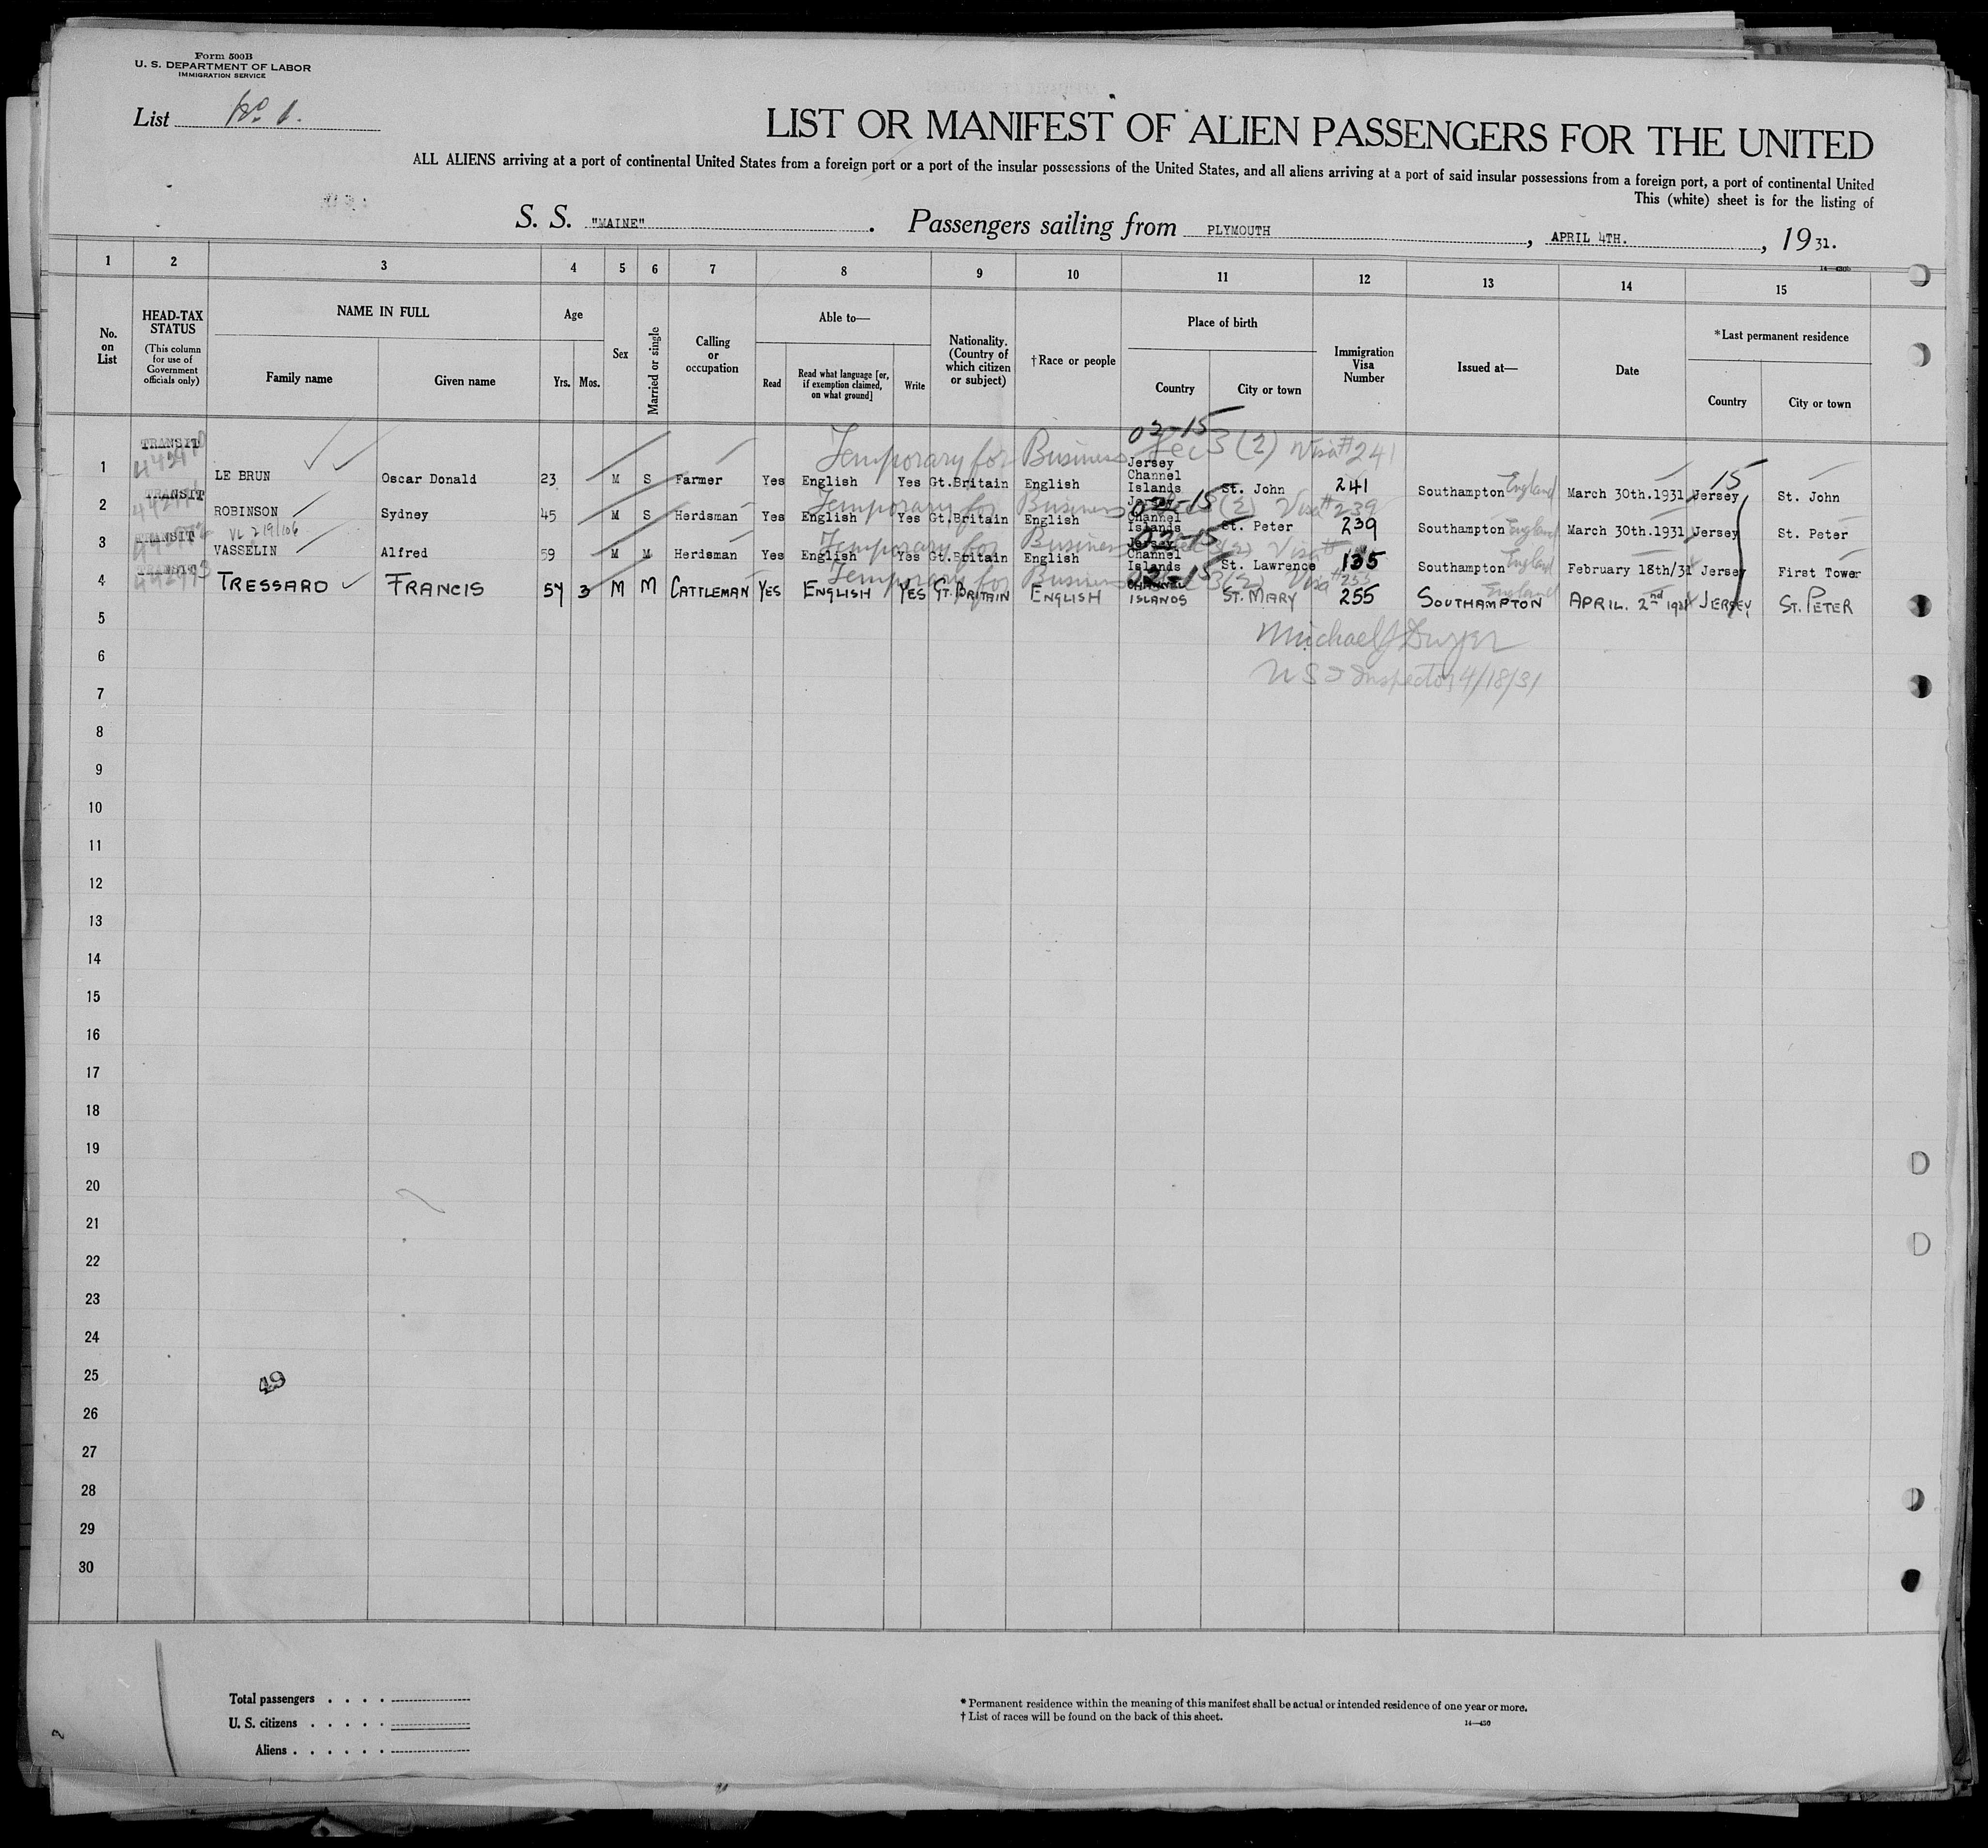 Form 500B
U. S. DEPARTMENT OF LABOR
IMMIGRATION SERVICE
List No. 1.
LIST OR MANIFEST OF ALIEN PASSENGERS FOR THE UNITED
ALL ALIENS arriving at a port of continental United States from a foreign port or a port of the insular possessions of the United States, and all aliens arriving at a port of said insular possessions from a foreign port, a port of continental United
This (white) sheet is for the listing of
S. S. "MAINE". Passengers sailing from PLYMOUTH, APRIL 4TH., 1931.
14—430b
1 2 3 4 5 6 7 8 9 10 11 12 13 14 15
No. on List
HEAD-TAX STATUS (This column for use of Government officials only)
NAME IN FULL
Family name Given name
Age
Yrs. Mos.
Sex
Married or single
Calling or occupation
Able to—
Read Read what language [or, if exemption claimed, on what ground] Write
Nationality. (Country of which citizen or subject)
†Race or people
Place of birth
Country City or town
Immigration Visa Number
Issued at—
Date
*Last permanent residence
Country City or town
02-15
Temporary for Business Sec 3(2) Visa #241
1 TRANSIT LE BRUN Oscar Donald 23 M S Farmer Yes English Yes Gt.Britain English Jersey Channel Islands St. John 241 Southampton England March 30th.1931 Jersey 15 St. John
02-15
Temporary for Business (2) Visa #239
2 TRANSIT ROBINSON Sydney 45 M S Herdsman Yes English Yes Gt.Britain English Jersey Channel Islands St. Peter 239 Southampton England March 30th.1931 Jersey St. Peter
VL 219106
02-15
Temporary for Business 3(2) Visa #
3 TRANSIT VASSELIN Alfred 59 M M Herdsman Yes English Yes Gt.Britain English Jersey Channel Islands St. Lawrence 135 Southampton England February 18th/31 Jersey First Tower
02-15
Temporary for Business 3(2) Visa #255
4 TRANSIT TRESSARD FRANCIS 54 3 M M CATTLEMAN YES ENGLISH YES GT. BRITAIN ENGLISH CHANNEL ISLANDS ST. MARY 255 SOUTHAMPTON England APRIL. 2nd 1931 JERSEY ST. PETER
5
Michael J Dwyer
6
U S I Inspector 4/18/31
7
8
9
10
11
12
13
14
15
16
17
18
19
20
21
22
23
24
25
49
26
27
28
29
30
Total passengers . . . .
U. S. citizens . . . . .
Aliens . . . . . .
* Permanent residence within the meaning of this manifest shall be actual or intended residence of one year or more.
† List of races will be found on the back of this sheet.
14—430
2